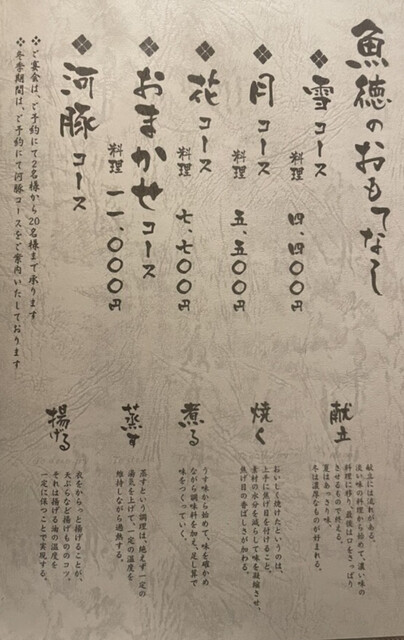 魚徳のおもてなし
❖雪コース
料理 四、四〇〇円
❖月コース
料理 五、五〇〇円
❖花コース
料理 七、七〇〇円
❖おまかせコース
料理 一一、〇〇〇円
❖河豚コース
❖ご宴会は、ご予約にて2名様から20名様まで承ります
❖冬季期間は、ご予約にて河豚コースをご案内いたしております
献立
献立には流れがある。
淡い味の料理から始めて、濃い味の
料理に移り、最後は口をさっぱり
させるもので終る。
夏はあっさり味、
冬は濃厚なものが好まれる。
焼く
おいしく焼けたというのは、
上手に焦げ目を付けること。
素材の水分を減らして味を凝縮させ、
焦げ目の香ばしさが加わる。
煮る
うす味から始めて、味を確かめ
ながら調味料を加え、足し算で
味をつくっていく。
蒸す
蒸すという調理は、絶えず一定の
湯気を上げて、一定の温度を
維持しながら過熱する。
揚げる
衣をからっと揚げることが、
天ぷらなど揚げもののコツ。
それは揚げる油の温度を
一定に保つことで実現する。